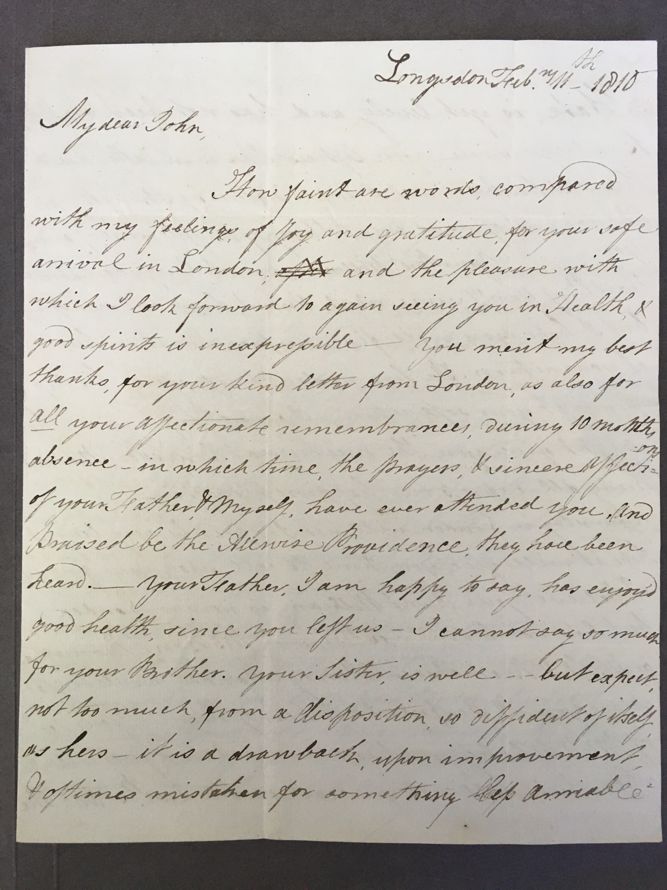 Longsdon Feb.ry 11th 1810
My dear John,
How faint are words, compared
with my feelings, of Joy and gratitude, for your safe
arrival in London, and the pleasure with
which I look forward to again seeing you in Health, &
good spirits is inexpressible — You merit my best
thanks, for your kind letter from London, as also for
all your affectionate remembrances, during 10 months
absence – in which time, the prayers, & sincere affecti-on,
of your Father & Myself, have ever attended you, And
Praised be the Allwise Providence, they have been
heard. — Your Father, I am happy to say, has enjoy'd
good health, since you left us – I cannot say so much
for your Brother. Your Sister, is well — but expect,
not too much, from a disposition, so diffident of itself,
as hers – it is a drawback, upon improvement,
& oftimes mistaken for something less amiable